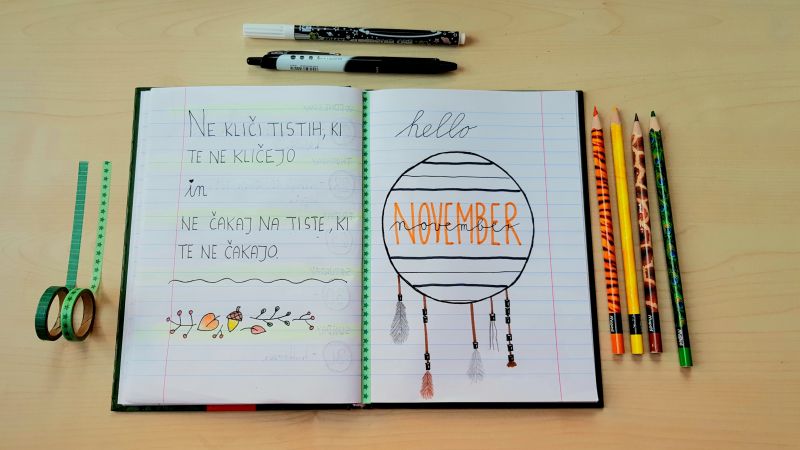 NE KLIČI TISTIH, KI
TE NE KLIČEJO
in
NE ČAKAJ NA TISTE, KI
TE NE ČAKAJO.
hello
NOVEMBER
november